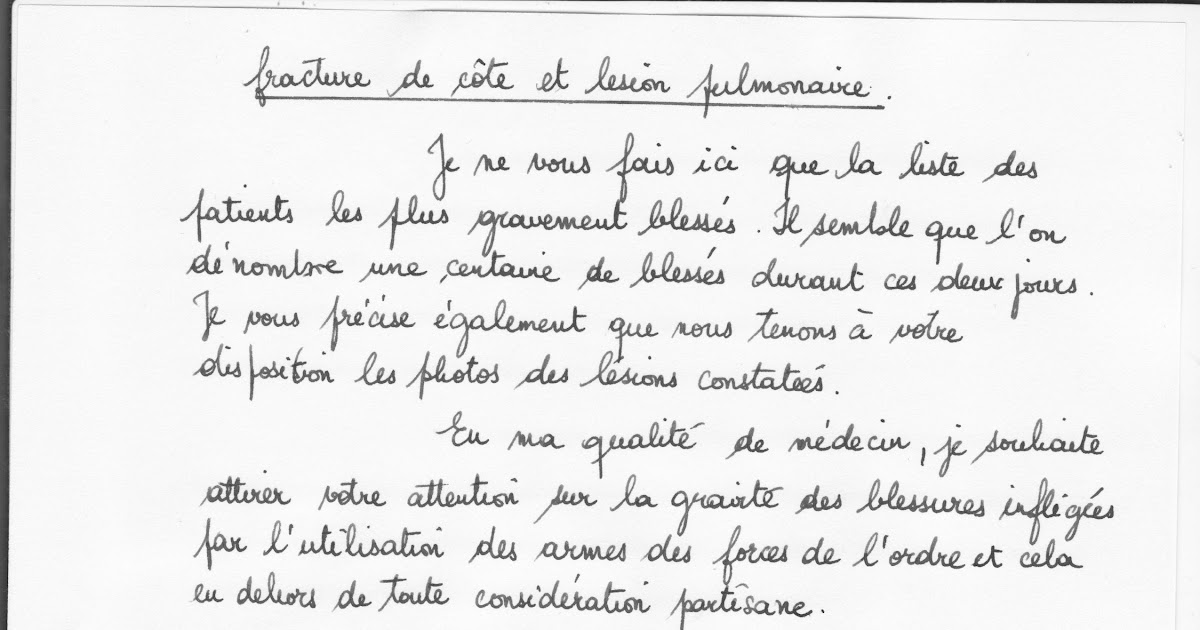 fracture de côte et lesion pulmonaire.
Je ne vous fais ici que la liste des
patients les plus gravement blessés. Il semble que l'on
dénombre une centaine de blessés durant ces deux jours.
Je vous précise également que nous tenons à votre
disposition les photos des lésions constatées.
En ma qualité de médecin, je souhaite
attirer votre attention sur la gravité des blessures infligées
par l'utilisation des armes des forces de l'ordre et cela
en dehors de toute considération partisane.